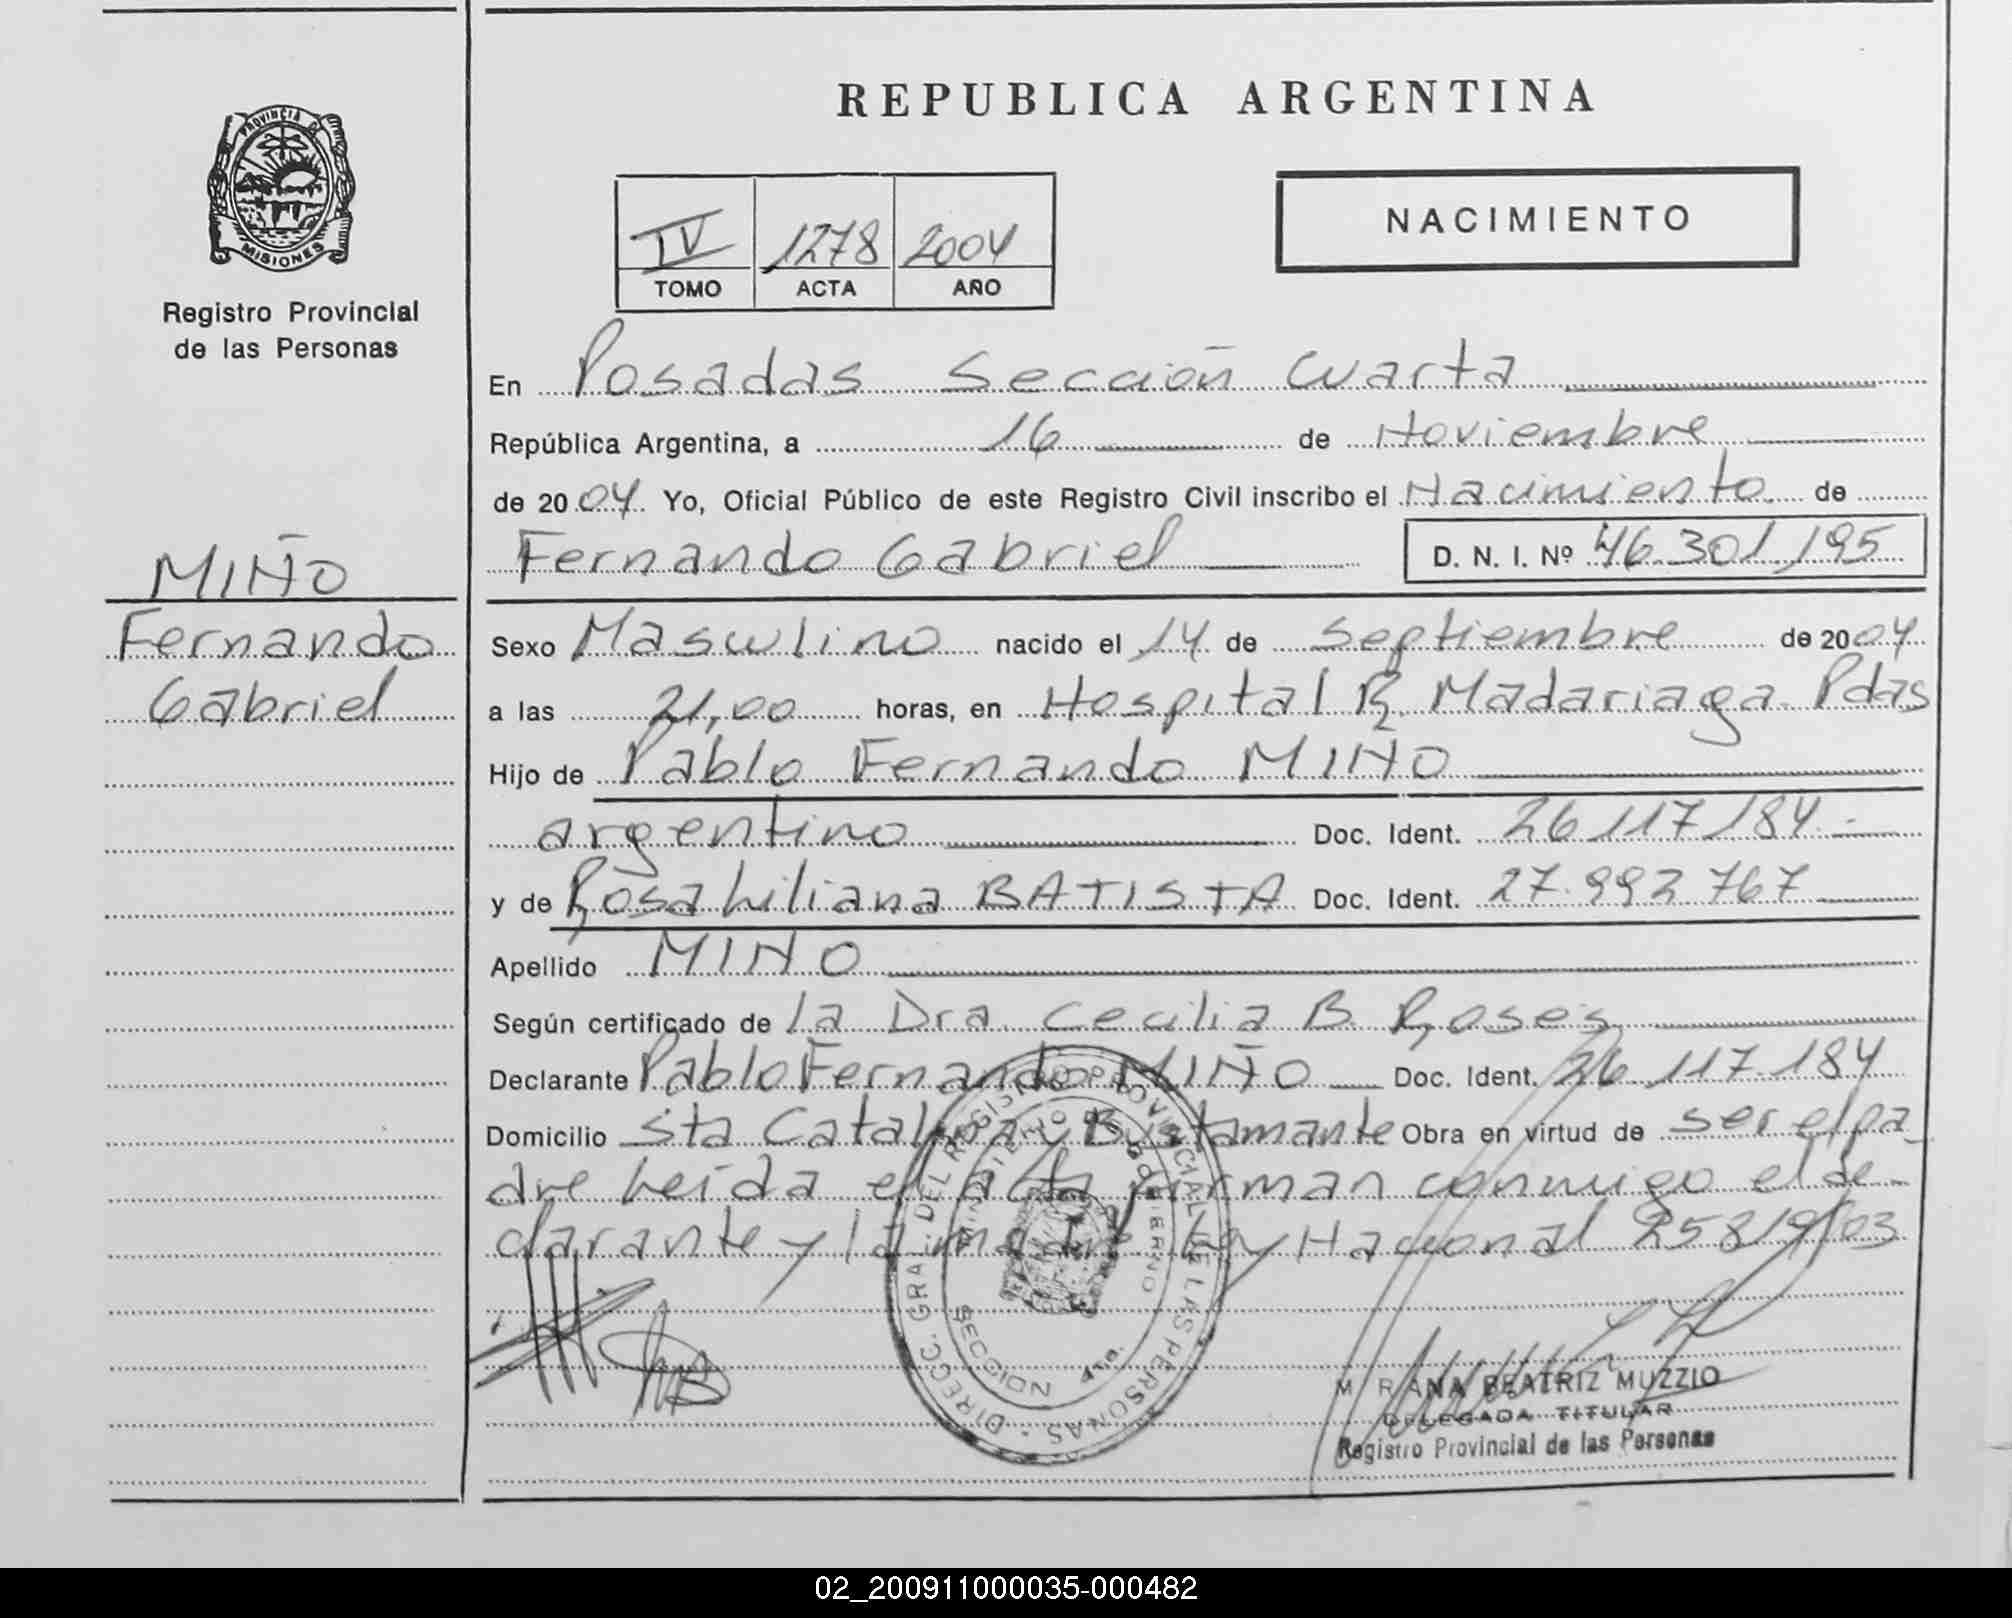 PROVINCIA DE
MISIONES
Registro Provincial
de las Personas
MIÑO
Fernando
Gabriel
REPUBLICA ARGENTINA
IV 1278 2004
TOMO ACTA AÑO
NACIMIENTO
En Posadas Sección Cuarta
República Argentina, a 16 de Noviembre
de 2004 Yo, Oficial Público de este Registro Civil inscribo el Nacimiento de
Fernando Gabriel D. N. I. Nº 46.301.195
Sexo Masculino nacido el 14 de Septiembre de 2004
a las 21,00 horas, en Hospital R. Madariaga. Pdas
Hijo de Pablo Fernando MIÑO
argentino Doc. Ident. 26.117.184.-
y de Rosa Liliana BATISTA Doc. Ident. 27.992.767
Apellido MIÑO
Según certificado de la Dra. Cecilia B. Roses
Declarante Pablo Fernando MIÑO Doc. Ident. 26.117.184
Domicilio Sta Catalina y Bustamante Obra en virtud de ser el pa
dre Leída el acta firman conmigo el de-
clarante y la madre Ley Nacional 25819/03
DIRECC. GRAL. DEL REGISTRO PROVINCIAL DE LAS PERSONAS
MINISTERIO DE GOBIERNO
SECCION 4ta.
MIRIANA BEATRIZ MUZZIO
DELEGADA TITULAR
Registro Provincial de las Personas
02_200911000035-000482